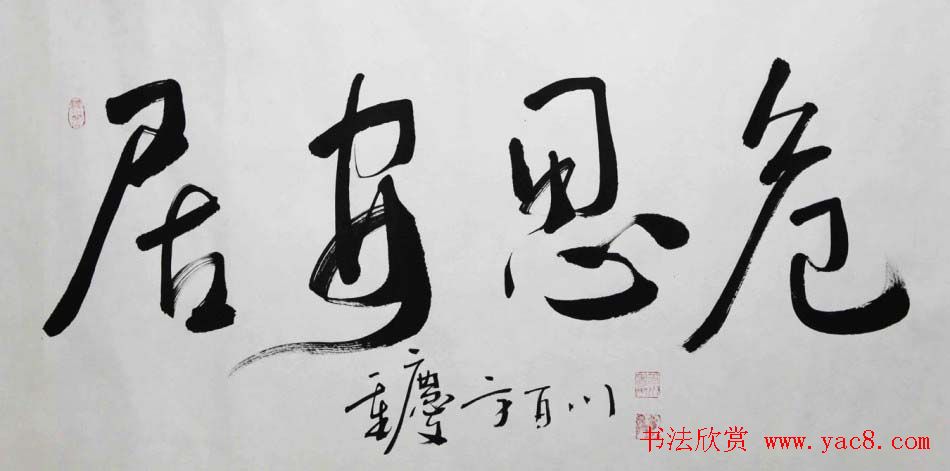 居安思危
重慶 方百川
书法欣赏 www.yac8.com